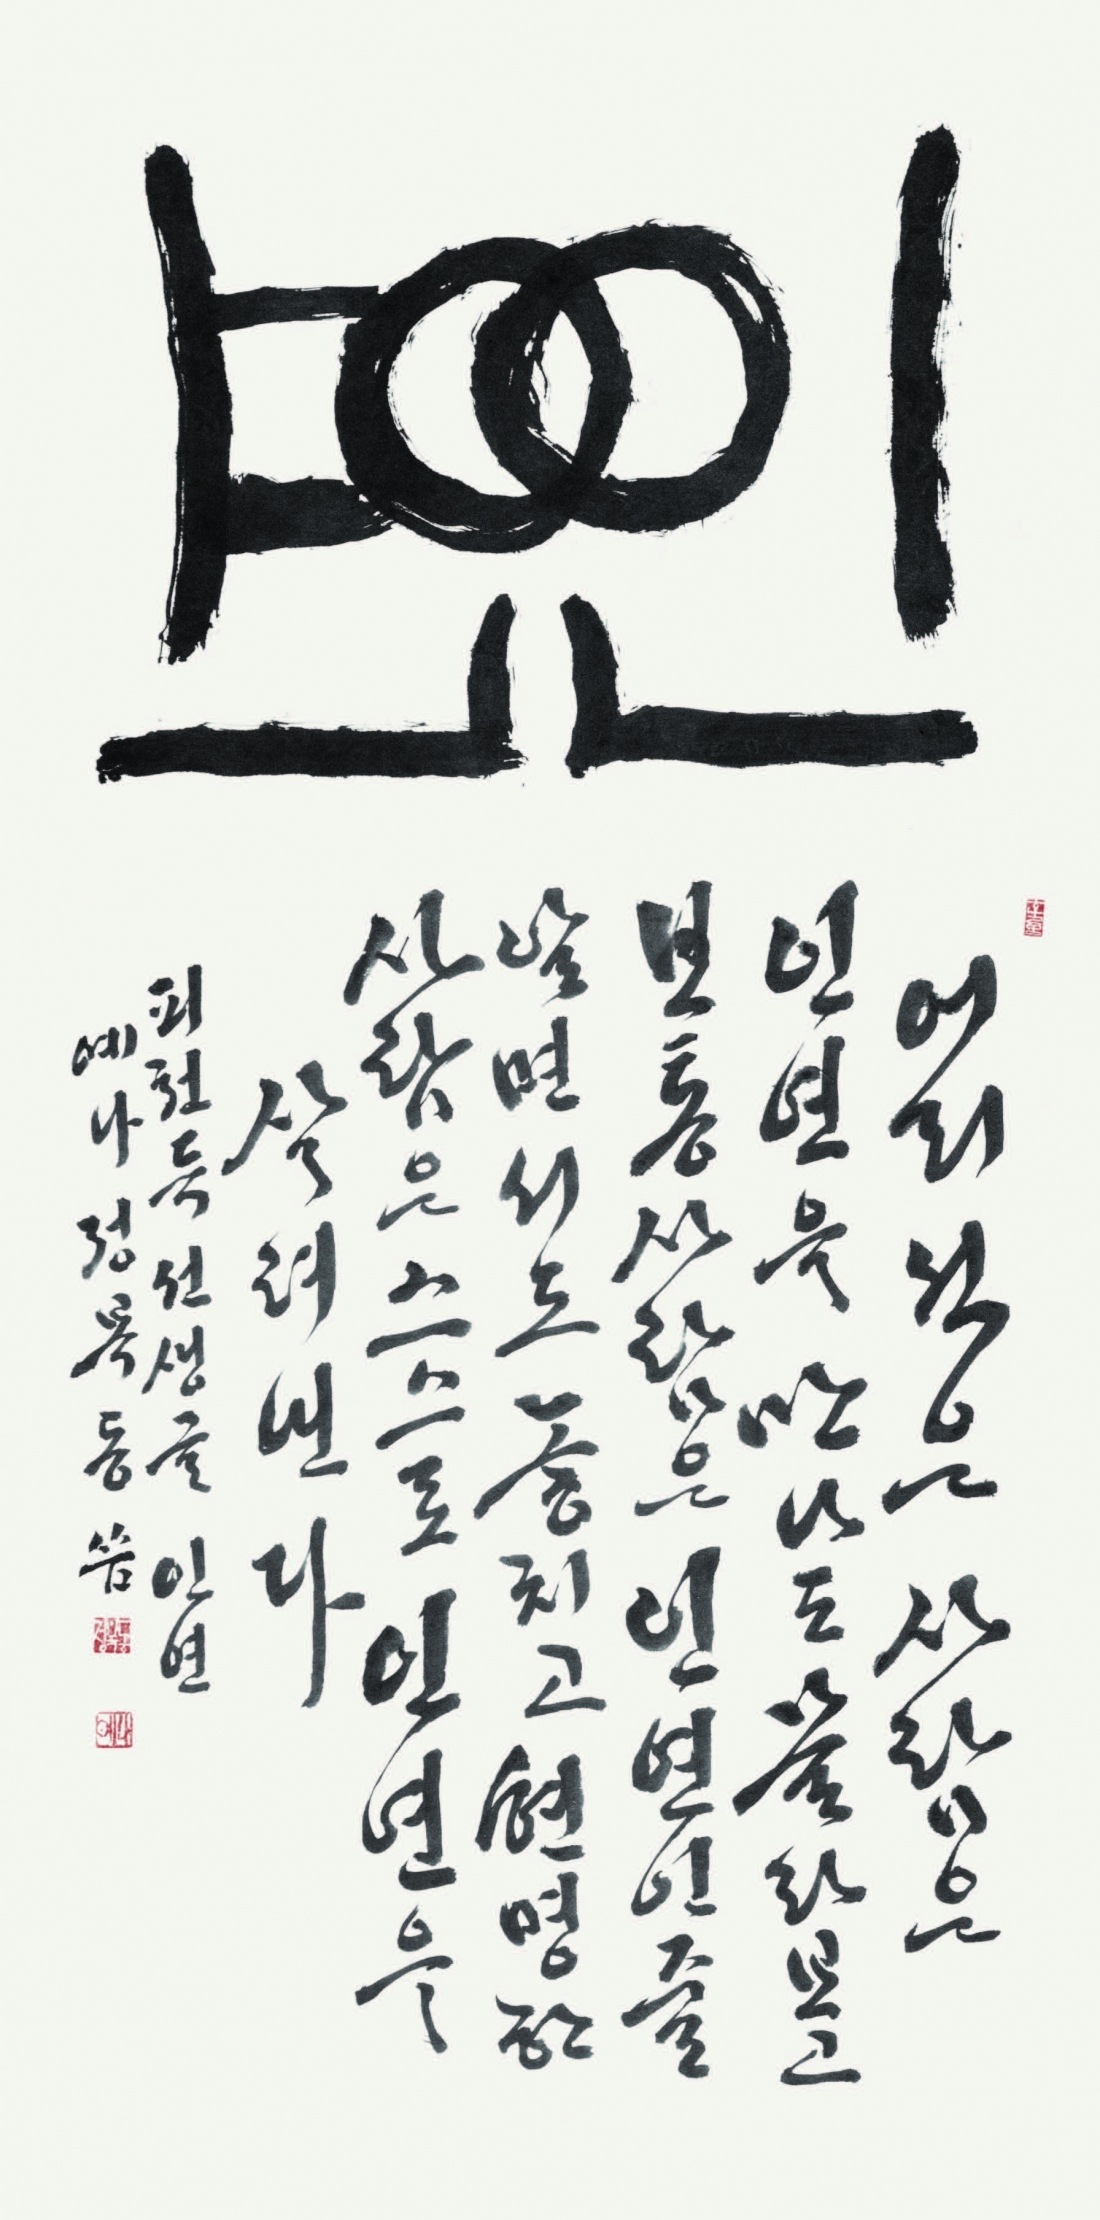 인연
어리석은 사람은
인연을 만나도 몰라보고
보통사람은 인연인줄
알면서도 놓치고 현명한
사람은 스스로 인연을
살려낸다
피천득 선생글 인연
예나 정복동 씀